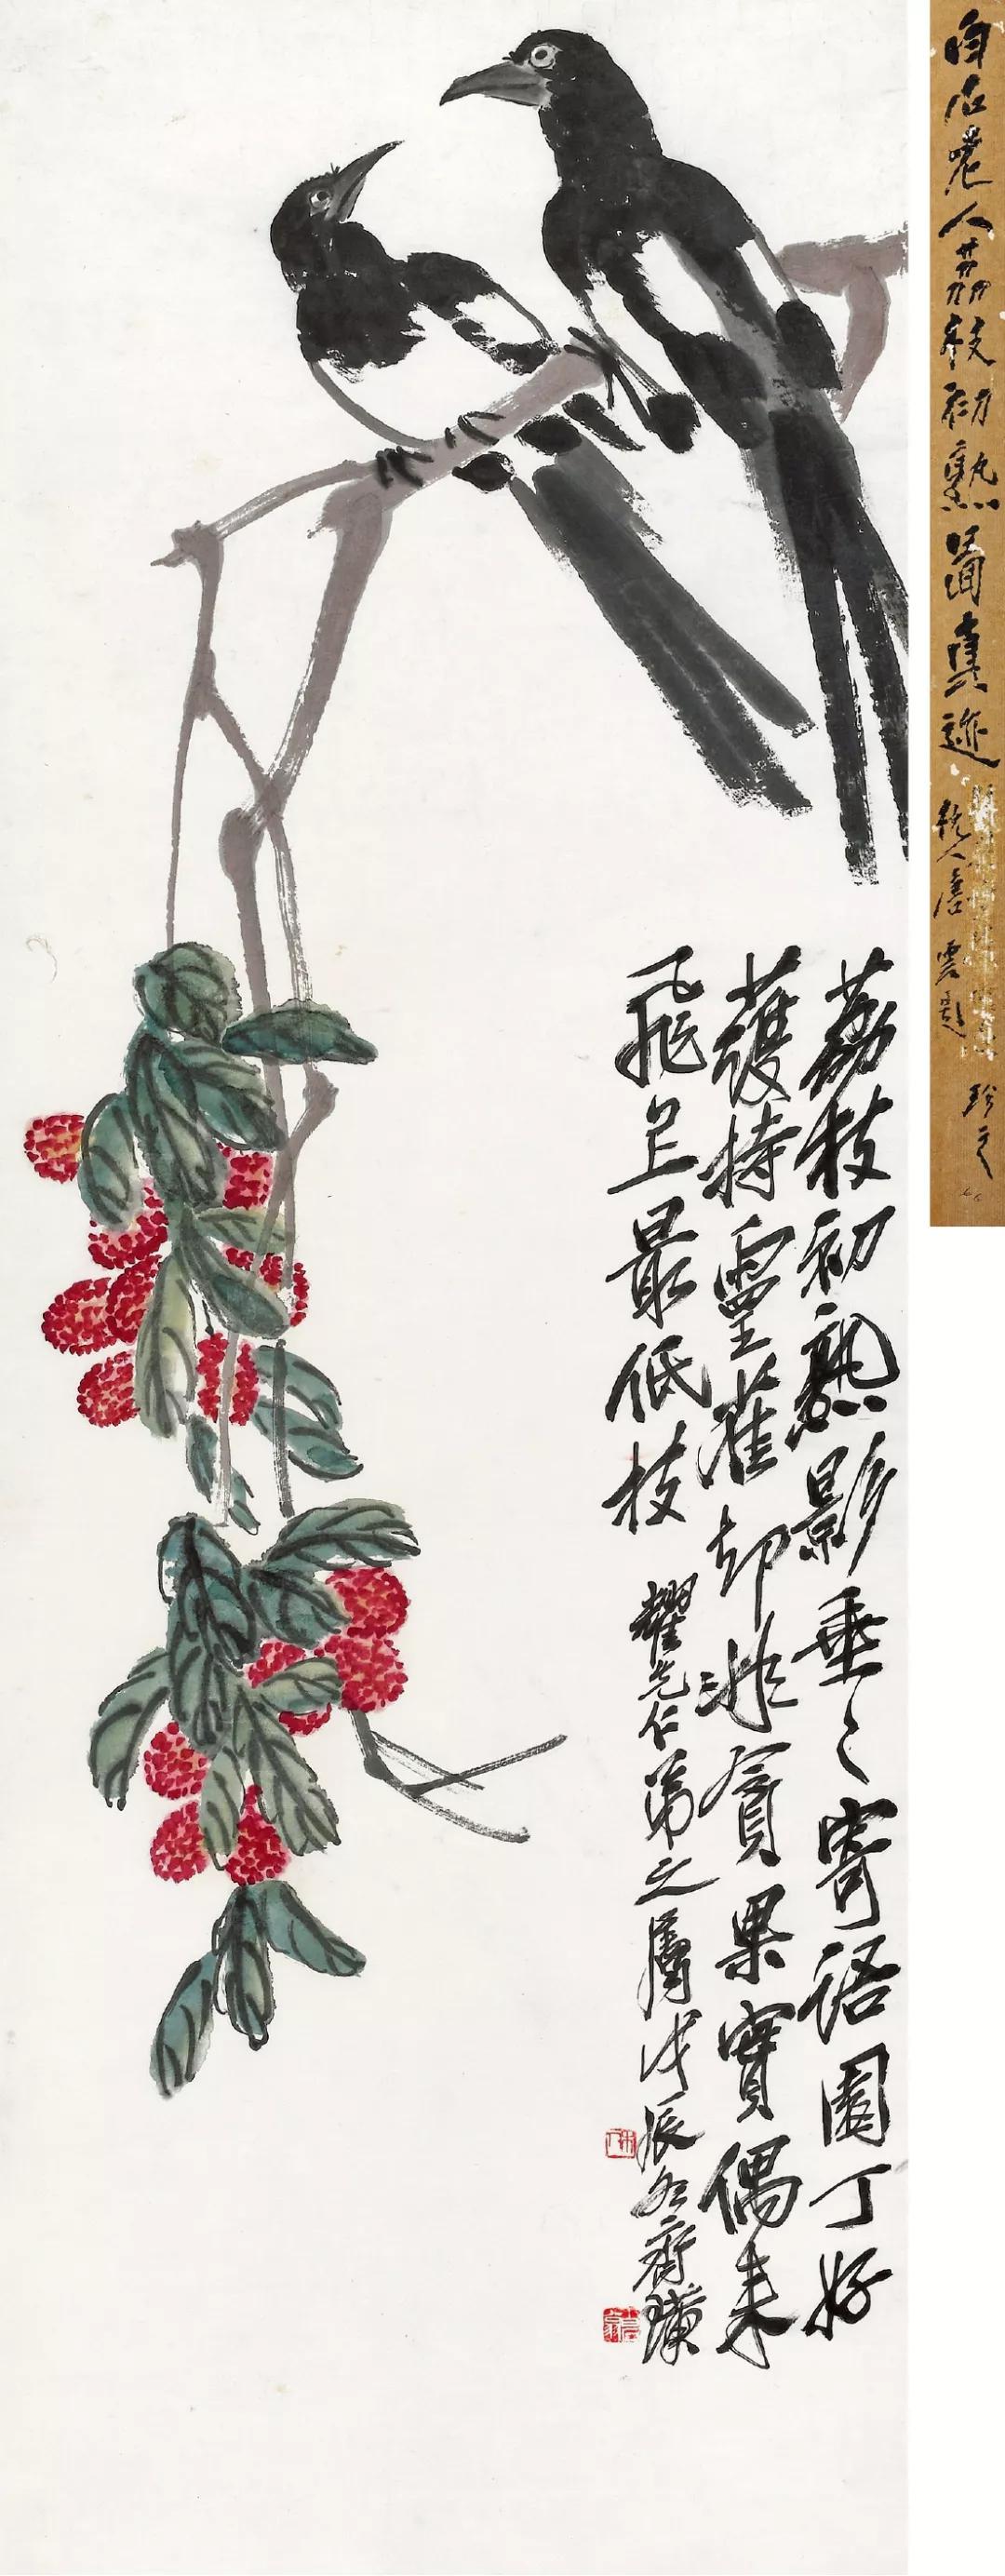 白石老人荔枝初熟圖真迹
杭人唐雲題
珍之
荔枝初熟影垂〻寄語園丁好
護持靈雀却非貪果實偶来
飛上最低枝
耀先仁弟之屬戊辰冬齊璜
木人
白石翁